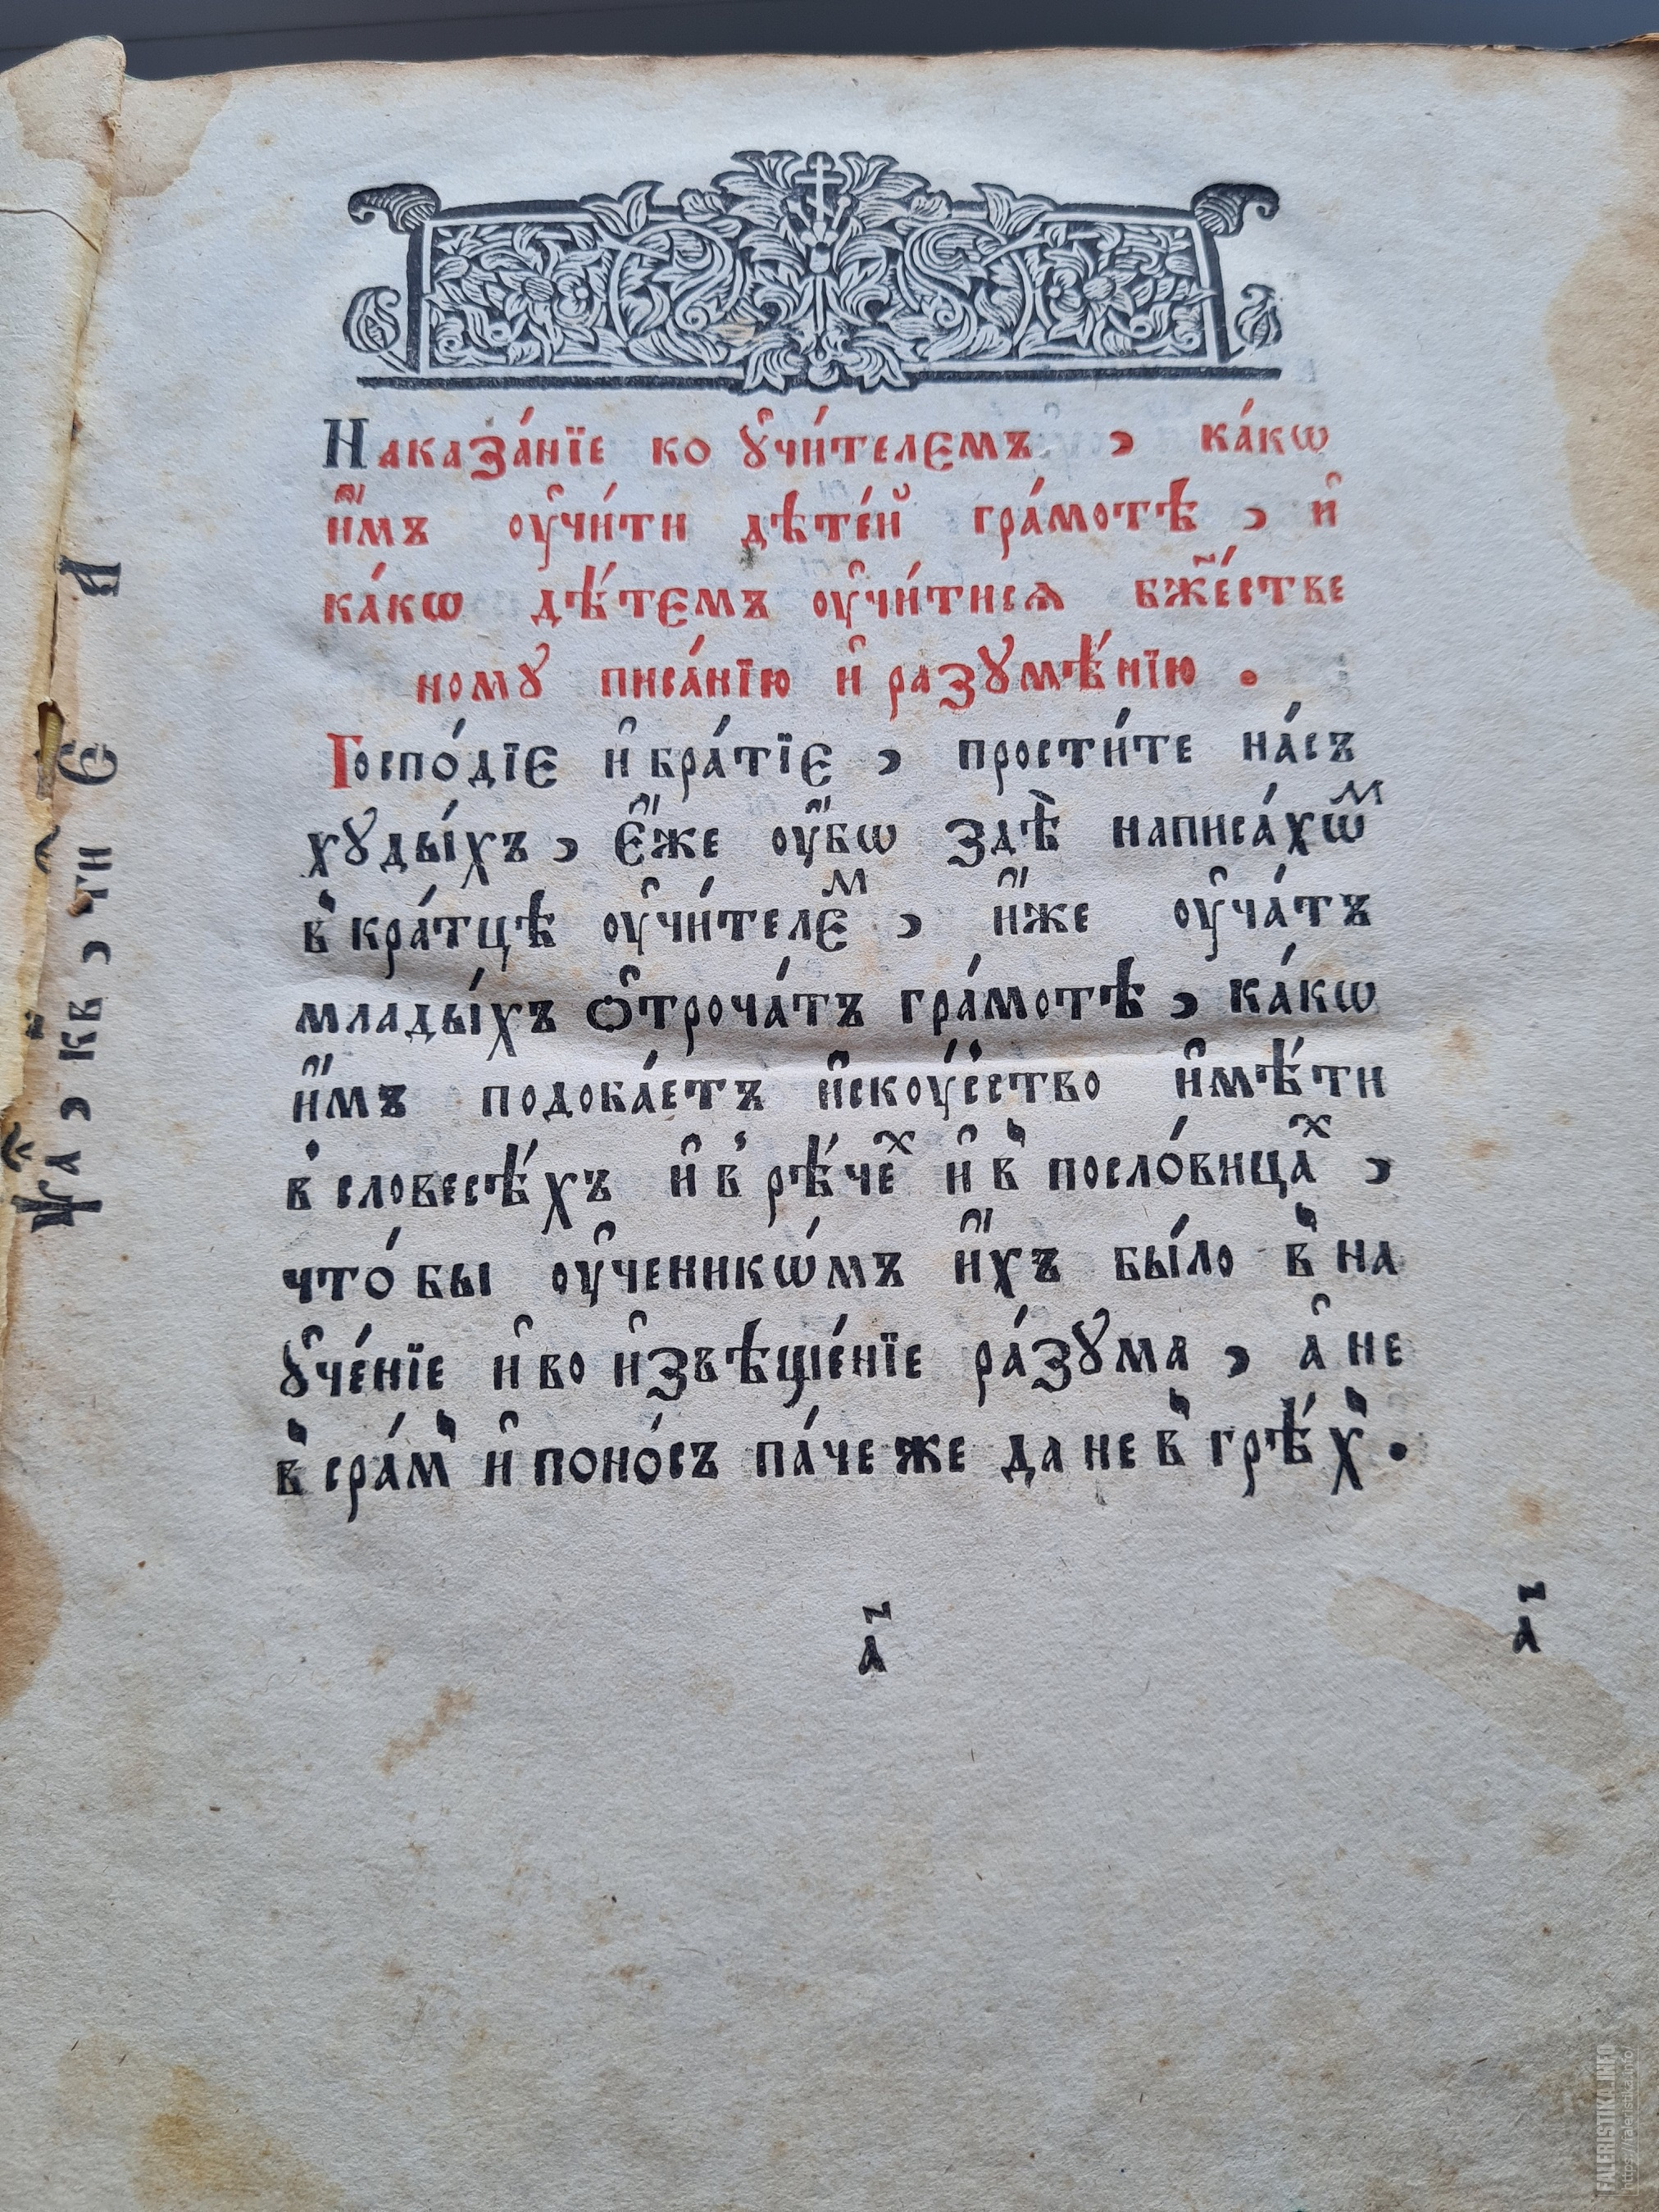 Наказа́нїе ко ᲂу҆чи́телємъ , ка́кѡ
и҆̀мъ ᲂу҆чи́ти дѣте́й гра́мотѣ , и҆
ка́кѡ дѣ́тємъ ᲂу҆чи́тисѧ бж҃е́стве
ному писа́нїю и҆ разꙋмѣ́нїю .
Госпо́дїє и҆ бра́тїє , прости́те на́съ
хꙋды́хъ , є҆́же ᲂу҆́бѡ здѣ̀ написа́хѡⷨ
в̾кра́тцѣ ᲂу҆чи́телєⷨ , и҆́же ᲂу҆ча́тъ
млады́хъ ѻ҆троча́тъ гра́мотѣ , ка́кѡ
и҆́мъ подоба́етъ и҆скоу́сство и҆мѣ́ти
в̾ словесѣ́хъ и҆ в̾ рѣ́чеⷯ и҆ в̾ посло́вицаⷯ ,
что́бы ᲂу҆ченикѡ́мъ и҆́хъ бы́ло в̾ на
ꙋ҆че́нїе и҆ во и҆звѣще́нїе ра́зꙋма , а҆ не
в̾ сра́м̾ и҆ поно́съ па́че же да не в̾ грѣ́х̾ .
а҃ а҃
FALERISTIKA.INFO
https://faleristika.info